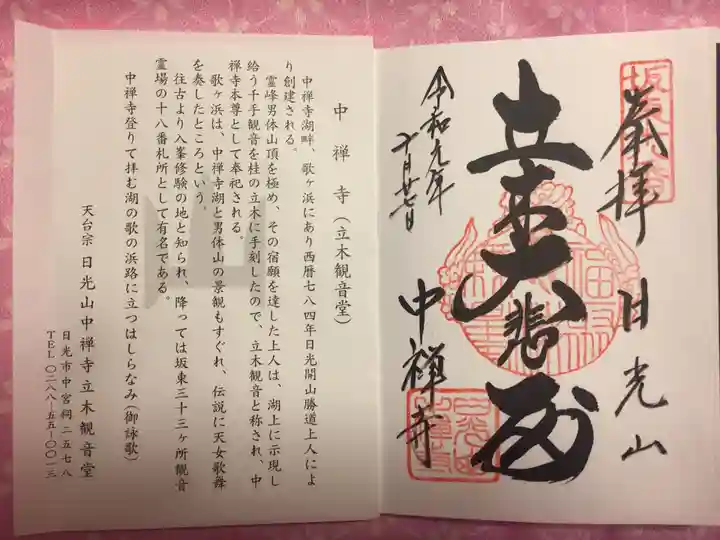 奉拝 日光山
立木大悲殿
令和元年
十月廿七日
中禅寺
中禅寺(立木観音堂)
中禅寺湖畔、歌ヶ浜にあり西暦七八四年日光開山勝道上人によ
り創建される。
霊峰男体山頂を極め、その宿願を達した上人は、湖上に示現し
給う千手観音を桂の立木に手刻したので、立木観音と称され、中
禅寺本尊として奉祀される。
歌ヶ浜は、中禅寺湖と男体山の景観もすぐれ、伝説に天女歌舞
を奏したところという。
往古より入峯修験の地と知られ、降っては坂東三十三ヶ所観音
霊場の十八番札所として有名である。
中禅寺登りて拝む湖の歌の浜路に立つはしらなみ(御詠歌)
天台宗 日光山中禅寺立木観音堂
日光市中宮祠二五七八
TEL 〇二八八-五五-〇〇一三